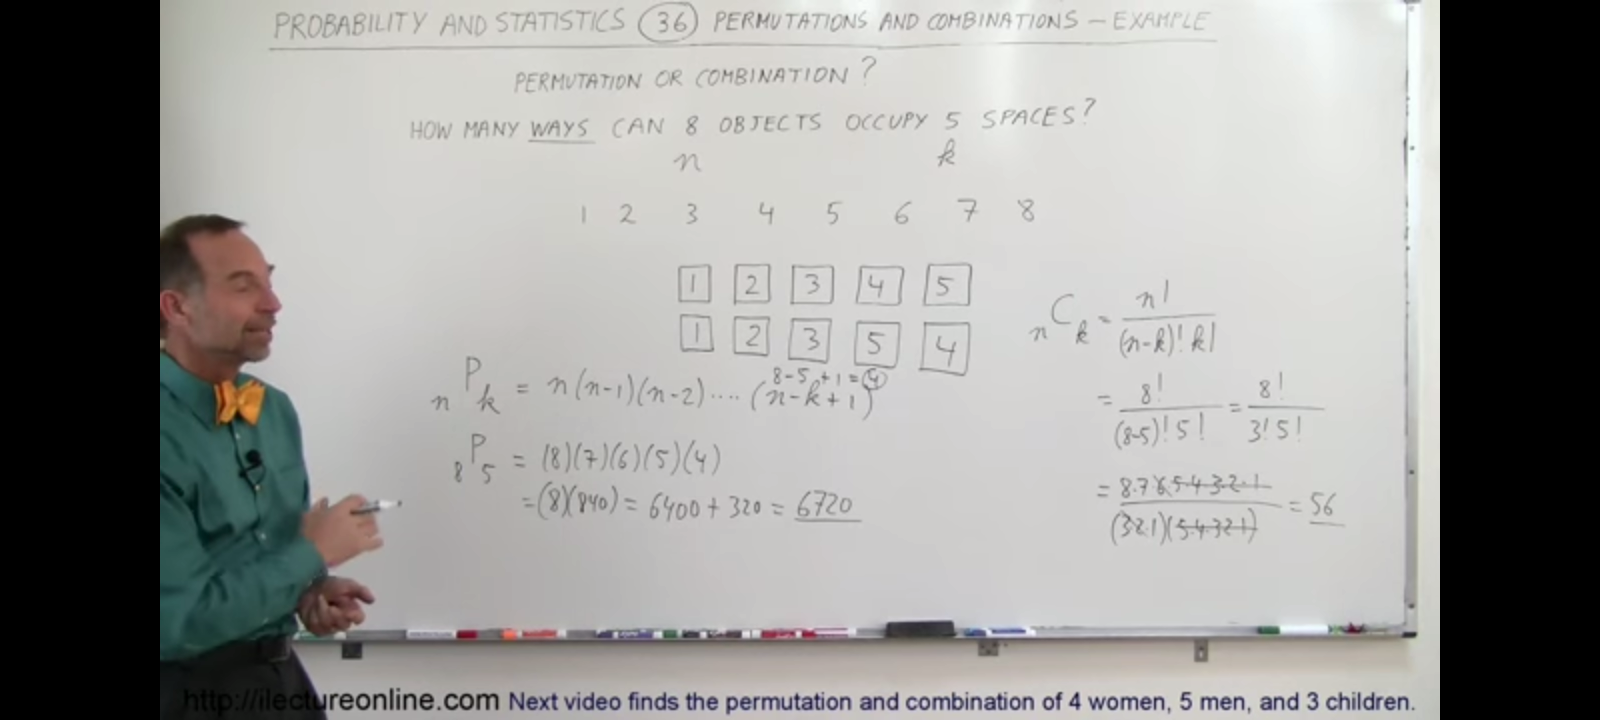 PROBABILITY AND STATISTICS 36 PERMUTATIONS AND COMBINATIONS – EXAMPLE
PERMUTATION OR COMBINATION?
HOW MANY WAYS CAN 8 OBJECTS OCCUPY 5 SPACES?
n k
1 2 3 4 5 6 7 8
1 2 3 4 5
1 2 3 5 4
nPk = n(n-1)(n-2)....(n-k+1)
8-5+1=4
8P5 = (8)(7)(6)(5)(4)
=(8)(840) = 6400+320 = 6720
nCk = n!/(n-k)! k!
= 8!/(8-5)! 5! = 8!/3! 5!
= 8·7·6·5·4·3·2·1/(3·2·1)(5·4·3·2·1) = 56
http://ilectureonline.com Next video finds the permutation and combination of 4 women, 5 men, and 3 children.